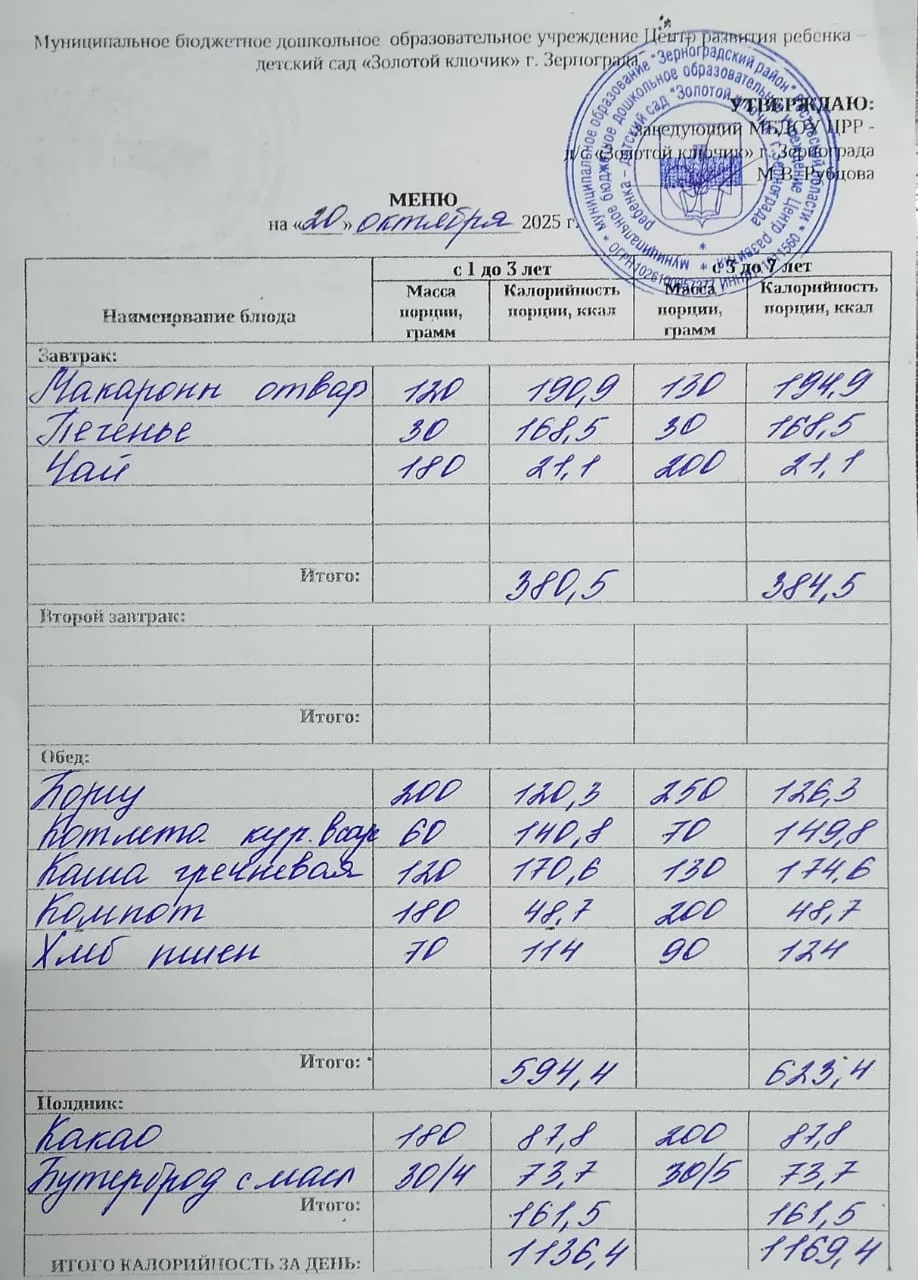 Муниципальное бюджетное дошкольное образовательное учреждение Центр развития ребенка –
детский сад «Золотой ключик» г. Зернограда
УТВЕРЖДАЮ:
Заведующий МБДОУ ЦРР -
д/с «Золотой ключик» г. Зернограда
М.В. Рубцова
МЕНЮ
на «20» октября 2025 г.
с 1 до 3 лет с 3 до 7 лет
Наименование блюда Масса порции, грамм Калорийность порции, ккал Масса порции, грамм Калорийность порции, ккал
Завтрак:
Макарони отвар 120 190,9 130 194,9
Печенье 30 168,5 30 168,5
Чай 180 21,1 200 21,1
Итого: 380,5 384,5
Второй завтрак:
Итого:
Обед:
Борщ 200 120,3 250 126,3
Котлета кур. 60 140,8 70 149,8
Каша гречневая 120 170,6 130 174,6
Компот 180 48,7 200 48,7
Хлеб пшен 70 114 90 124
Итого: 594,4 623,4
Полдник:
Какао 180 87,8 200 87,8
Бутерброд с масл 30/4 73,7 30/5 73,7
Итого: 161,5 161,5
ИТОГО КАЛОРИЙНОСТЬ ЗА ДЕНЬ: 1136,4 1169,4